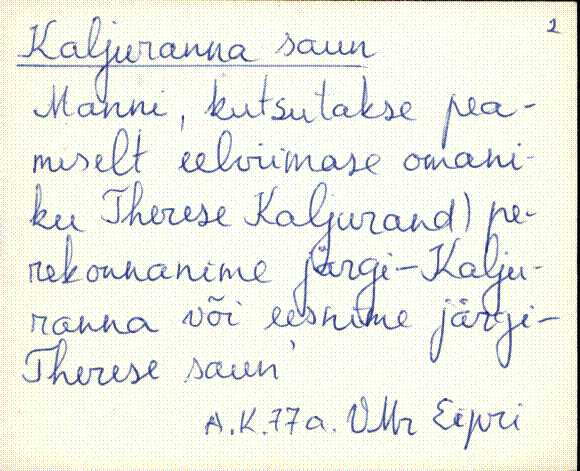 2
Kaljuranna saun
Manni, kutsutakse pea-
miselt eelviimase omani-
ku Therese Kaljurand) pe-
rekonnanime järgi – Kalju-
ranna või eesnime järgi –
Therese saun
A.K. 77a. VMr Eipri